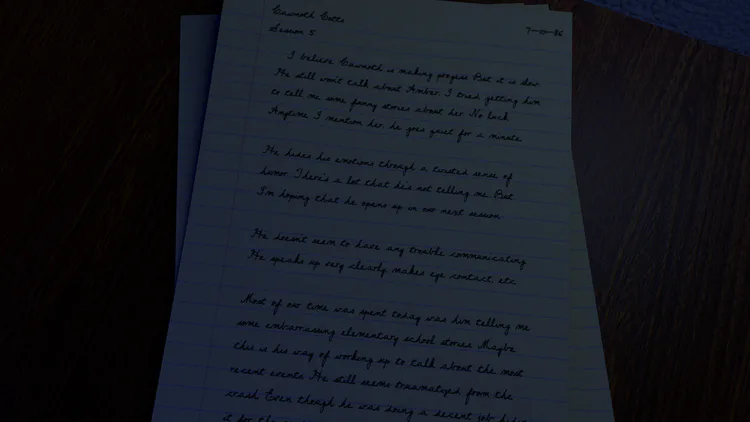 Session 5
I believe is making progress But it is slow
He still won't talk about Amber. I tried getting him
to tell me some funny stories about her No luck
Anytime I mention her, he goes quiet for a minute
He hides his emotions through a twisted sense of
humor There's a lot that he's not telling me But
I'm hoping that he opens up in our next session
He doesn't seem to have any trouble communicating
He speaks up very clearly, makes eye contact, etc
Most of our time was spent today was him telling me
some embarrassing elementary school stories Maybe
this is his way of working up to talk about the most
recent events He still seems traumatized from the
crash Even though he was doing a decent job
it for the